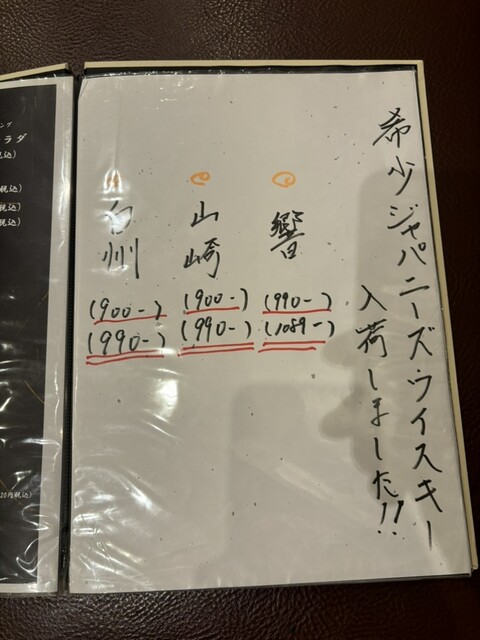 希少ジャパニーズウイスキー
入荷しました!!
響
(990-)
(1089-)
山崎
(900-)
(990-)
白州
(900-)
(990-)
ング
ラダ
税込)
税込)
税込)
税込)
20円税込)